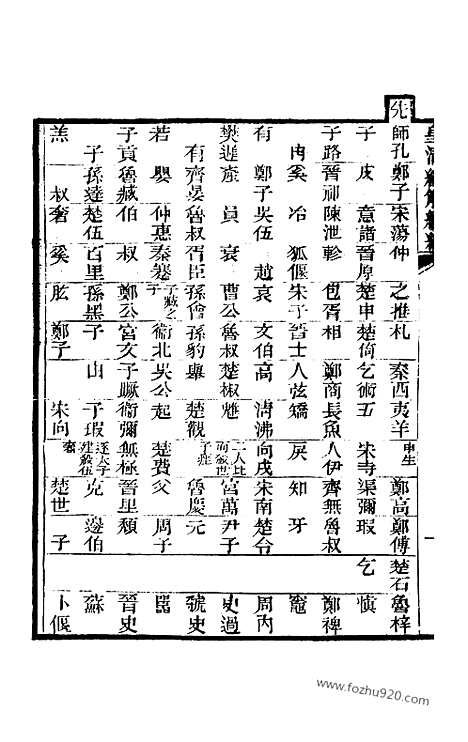 皇清經解續編
一
先師孔鄭子宋蕩仲之推札秦西夷羊申生鄭高鄭傅楚石魯梓
子皮意諸晉原楚申楚倚乞術五宋寺渠彌瑕乞慎
子路晉祁陳泄軫包胥相鄭商長魚人伊齊無魯叔鄭裨
冉奚冶狐偃朱子晉士人弦矯戾知牙竈
有鄭子吳伍趙衰文伯高清沸向戌宋南楚令周內
樊遲產員衰曹公魯叔楚椒魋二人比向敘世子痤宮萬尹子史過
有齊晏魯叔胥臣孫會孫豹舉楚觀魯慶元虢史
若嬰仲惠秦蹇子臧之子衞北吳公起楚費父周子嚚
子貢魯臧伯叔鄭公宮文子蹶衞彌無極晉里頹晉史
子孫達楚伍百里孫黑子山子瑕逐太子建敘伍奢克邊伯蘇
羔叔奢奚肱鄭子宋向楚世子卜偃
www.fozhu920.com